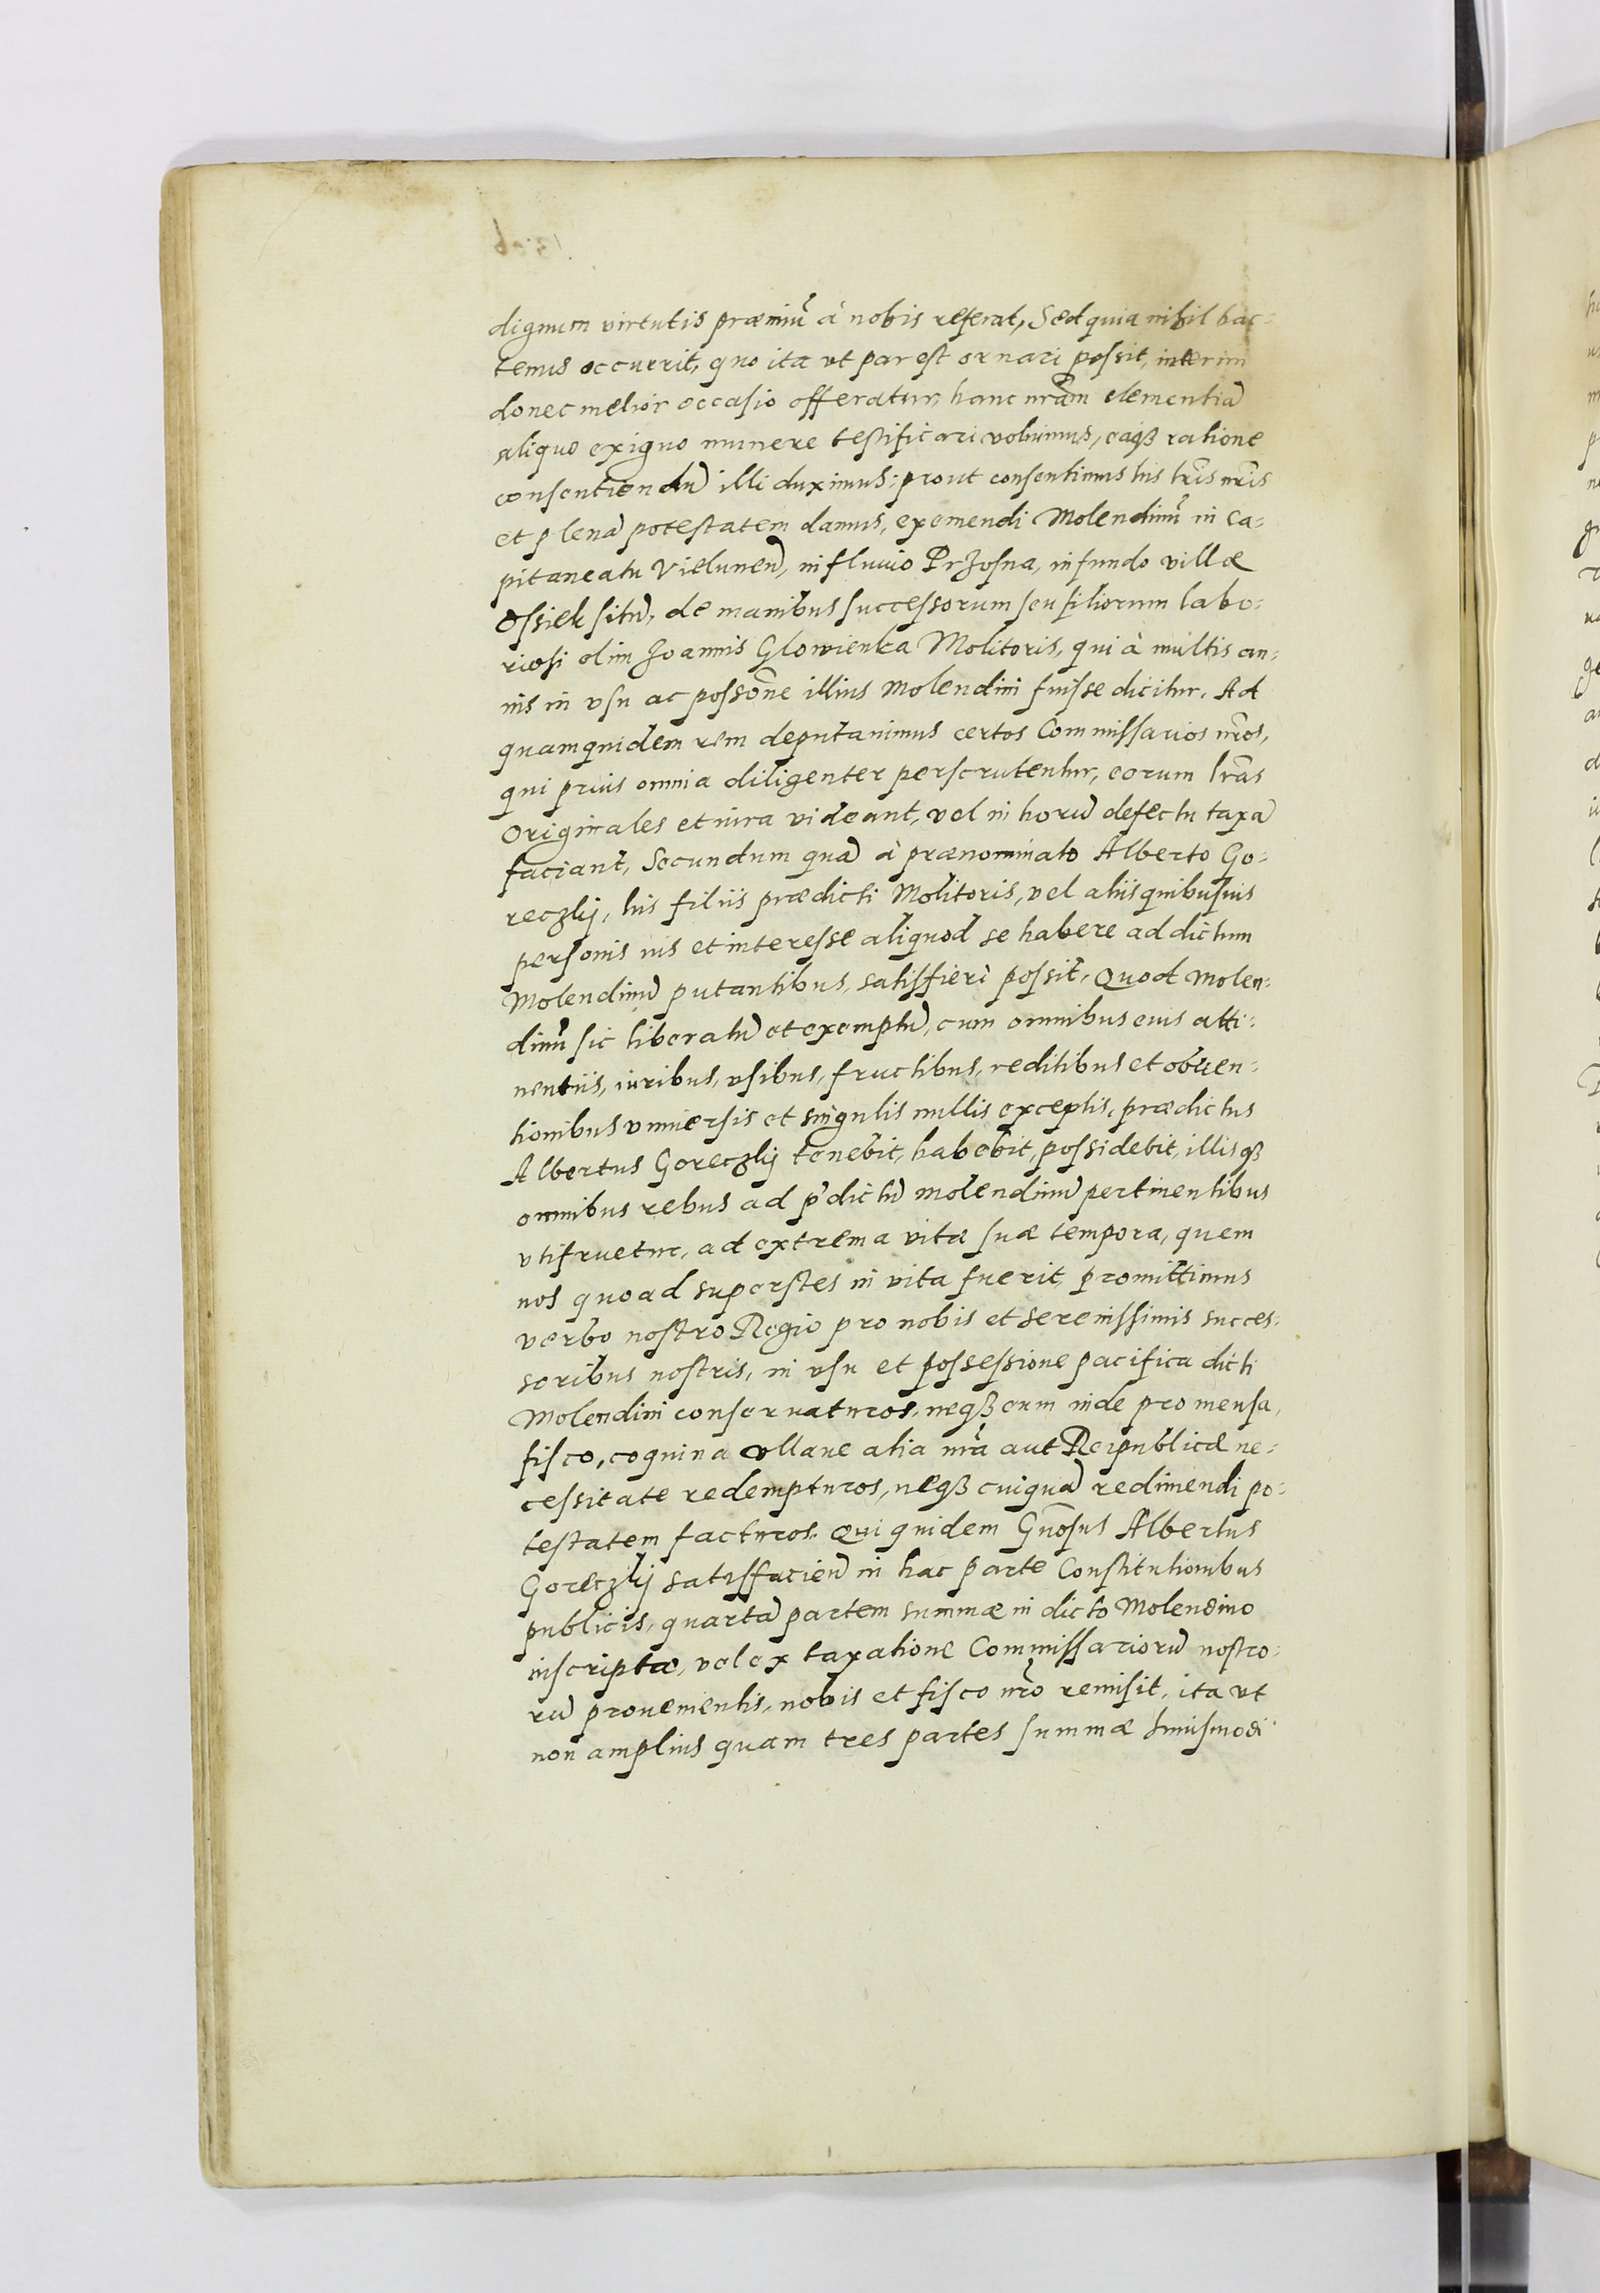 dignum virtutis præmiũ à nobis referat, Sed quia nihil hac-
tenus occurrit, quo ita vt par est ornari possit, interim
donec melior occasio offeratur, hanc nr̃am clementiã
aliquo exiguo munere testificari voluimus, eaqꝫ ratione
consentiendũ illi duximus: prout consentimus his lr̃is nr̃is
et plenã potestatem damus, exemendi Molendinũ in Ca-
pitaneatu Vielunen̄, in fluuio Przosna, in fundo villæ
Ossiek sitũ, de manibus successorum seu filiorum labo-
riosi olim Joannis Glowienka Molitoris, qui à multis an-
nis in vsu ac possõne illius Molendini fuisse dicitur. Ad
quamquidem rem deputauimus certos Commissarios nr̃os,
qui prius omnia diligenter perscrutentur, eorum lr̃as
Originales et iura videant, vel in horũ defectu taxã
faciant, Secundum quã à prænominato Alberto Go-
reczky, his filiis prædicti Molitoris, vel aliis quibusuis
personis ius et interesse aliquod se habere ad dictum
Molendinũ putantibus, satisfieri possit, Quod Molen-
dinũ sic liberatũ et exemptũ, cum omnibus euis atti-
nentiis, iuribus, vsibus, fructibus, reditibus et obuen-
tionibus vniuersis et singulis nullis exceptis, prædictus
Albertus Goreczky tenebit, habebit, possidebit, illisqꝫ
omnibus rebus ad p̃dictũ molendinũ pertinentibus
vtifruetur, ad extrema vitæ suæ tempora, quem
nos quoad superstes in vita fuerit promittimus
verbo nostro Regio pro nobis et Serenissimis succes-
soribus nostris, in vsu et possessione pacifica dicti
Molendini conseruaturos, neqꝫ eum inde pro mensa,
fisco, coquina vllaue alia nr̃a aut Reipublicæ ne-
cessitate redempturos, neqꝫ cuiquã redimendi po-
testatem facturos. Qui quidem Gn̄osus Albertus
Goreczky satisfacien̄ in hac parte Constitutionibus
publicis, quartã partem summæ in dicto Molendino
inscriptæ, vel ex taxatione Commissariorũ nostro-
rũ prouenientis, nobis et fisco nr̃o remisit, ita vt
non amplius quam tres partes summæ huiusmodi